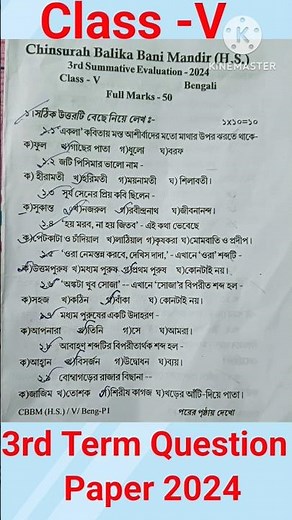 Class -V
Chinsurah Balika Bani Mandir (H.S.)
KINEMASTER
3rd Summative Evaluation - 2024
Class - V Bengali
Full Marks - 50
১।সঠিক উত্তরটি বেছে নিয়ে লেখ :- ১x১০=১০
১.১ 'একলা' কবিতায় মস্ত আশীর্বাদের মতো মাথার উপর ঝরতে থাকে-
ক)ফুল খ)গাছের পাতা গ)ধুলো ঘ)বরফ
১.২ জটি পিসিমার ভালো নাম -
ক) হীরামতী খ)হরিমতী গ)ময়নামতী ঘ)শিলাবতী।
১.৩ সূর্য সেনের প্রিয় কবি ছিলেন -
ক)সুকান্ত খ)নজরুল গ)রবীন্দ্রনাথ ঘ)জীবনানন্দ।
১.৪ 'হয় মরব, না হয় জিতব' - এই কথা ভেবেছে
ক)পেটকাটা ও চাঁদিয়াল খ)লাঠিয়াল গ)কৃষকরা ঘ)মোমবাতি ও প্রদীপ।
১.৫ 'ওরা নেমন্তন্ন করবে, দেখিস দাদা,' - এখানে 'ওরা' শব্দটি -
ক)উত্তমপুরুষ খ)মধ্যম পুরুষ গ)প্রথম পুরুষ ঘ)কোনটাই নয়।
'অঙ্কটা খুব সোজা' -- এখানে 'সোজা'র বিপরীত শব্দ হল -
ক)সহজ খ)কঠিন গ)বাঁকা ঘ) কোনটাই নয়।
মধ্যম পুরুষের একটি উদাহরণ -
ক)আপনারা খ)তিনি গ)সে ঘ)আমরা।
আবাহণ শব্দটির বিপরীতার্থক শব্দ হল -
ক)আহ্বান খ)বিসর্জন গ)উদ্বোধন ঘ)ব্যয়।
বোম্বাগড়ের রাজার বিছানা --
ক)জাজিম খ)তোশক গ)শিরীষ কাগজ ঘ)খড়ের আঁটি-দিয়ে পাতা।
CBBM (H.S.) / V/ Beng-P1 পরের পৃষ্ঠায় দেখো
3rd Term Question
Paper 2024